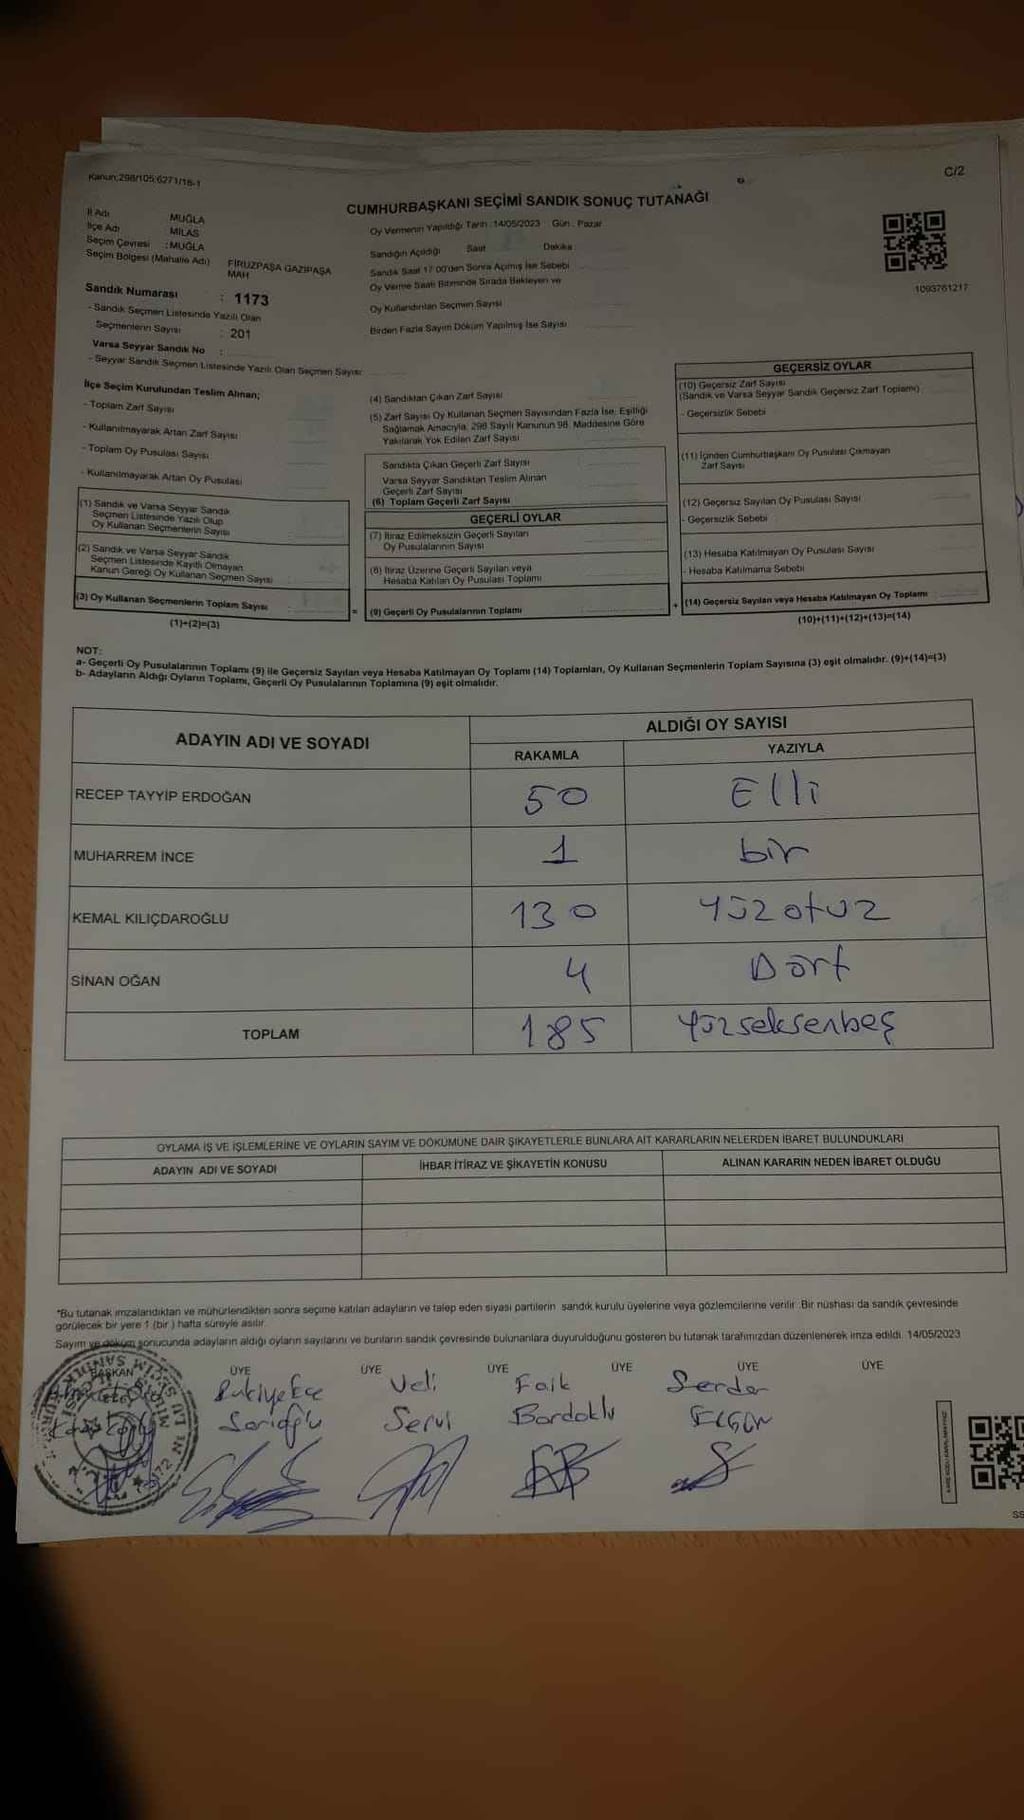 Kanun:298/105 6271/16-1
C/2
CUMHURBAŞKANI SEÇİMİ SANDIK SONUÇ TUTANAĞI
İl Adı MUĞLA
İlçe Adı MİLAS
Seçim Çevresi :MUĞLA
Seçim Bölgesi (Mahalle Adı) FİRUZPAŞA GAZİPAŞA MAH
Sandık Numarası : 1173
- Sandık Seçmen Listesinde Yazılı Olan
Seçmenlerin Sayısı : 201
Varsa Seyyar Sandık No :
- Seyyar Sandık Seçmen Listesinde Yazılı Olan Seçmen Sayısı
Oy Vermenin Yapıldığı Tarih :14/05/2023 Gün : Pazar
Sandığın Açıldığı Saat Dakika
Sandık Saat 17:00'den Sonra Açılmış İse Sebebi
Oy Verme Saati Bitiminde Sırada Bekleyen ve
Oy Kullandırılan Seçmen Sayısı
Birden Fazla Sayım Döküm Yapılmış İse Sayısı
1093761217
İlçe Seçim Kurulundan Teslim Alınan;
- Toplam Zarf Sayısı
- Kullanılmayarak Artan Zarf Sayısı
- Toplam Oy Pusulası Sayısı
- Kullanılmayarak Artan Oy Pusulası
(1) Sandık ve Varsa Seyyar Sandık
Seçmen Listesinde Yazılı Olup
Oy Kullanan Seçmenlerin Sayısı
(2) Sandık ve Varsa Seyyar Sandık
Seçmen Listesinde Kayıtlı Olmayan
Kanun Gereği Oy Kullanan Seçmen Sayısı
(3) Oy Kullanan Seçmenlerin Toplam Sayısı :
(1)+(2)=(3)
(4) Sandıktan Çıkan Zarf Sayısı
(5) Zarf Sayısı Oy Kullanan Seçmen Sayısından Fazla İse, Eşitliği
Sağlamak Amacıyla, 298 Sayılı Kanunun 98. Maddesine Göre
Yakılarak Yok Edilen Zarf Sayısı
Sandıkta Çıkan Geçerli Zarf Sayısı
Varsa Seyyar Sandıktan Teslim Alınan
Geçerli Zarf Sayısı
(6) Toplam Geçerli Zarf Sayısı
GEÇERLİ OYLAR
(7) İtiraz Edilmeksizin Geçerli Sayılan
Oy Pusulalarının Sayısı
(8) İtiraz Üzerine Geçerli Sayılan veya
Hesaba Katılan Oy Pusulası Toplamı
= (9) Geçerli Oy Pusulalarının Toplamı
GEÇERSİZ OYLAR
(10) Geçersiz Zarf Sayısı
(Sandık ve Varsa Seyyar Sandık Geçersiz Zarf Toplamı)
- Geçersizlik Sebebi
(11) İçinden Cumhurbaşkanı Oy Pusulası Çıkmayan
Zarf Sayısı
(12) Geçersiz Sayılan Oy Pusulası Sayısı
- Geçersizlik Sebebi
(13) Hesaba Katılmayan Oy Pusulası Sayısı
- Hesaba Katılmama Sebebi
+ (14) Geçersiz Sayılan veya Hesaba Katılmayan Oy Toplamı
(10)+(11)+(12)+(13)=(14)
NOT:
a- Geçerli Oy Pusulalarının Toplamı (9) ile Geçersiz Sayılan veya Hesaba Katılmayan Oy Toplamı (14) Toplamları, Oy Kullanan Seçmenlerin Toplam Sayısına (3) eşit olmalıdır. (9)+(14)=(3)
b- Adayların Aldığı Oyların Toplamı, Geçerli Oy Pusulalarının Toplamına (9) eşit olmalıdır.
ADAYIN ADI VE SOYADI
ALDIĞI OY SAYISI
RAKAMLA YAZIYLA
RECEP TAYYİP ERDOĞAN 50 Elli
MUHARREM İNCE 1 bir
KEMAL KILIÇDAROĞLU 130 Yüzotuz
SİNAN OĞAN 4 Dört
TOPLAM 185 Yüzseksenbeş
OYLAMA İŞ VE İŞLEMLERİNE VE OYLARIN SAYIM VE DÖKÜMÜNE DAİR ŞİKAYETLERLE BUNLARA AİT KARARLARIN NELERDEN İBARET BULUNDUKLARI
ADAYIN ADI VE SOYADI İHBAR İTİRAZ VE ŞİKAYETİN KONUSU ALINAN KARARIN NEDEN İBARET OLDUĞU
*Bu tutanak imzalandıktan ve mühürlendikten sonra seçime katılan adayların ve talep eden siyasi partilerin sandık kurulu üyelerine veya gözlemcilerine verilir. Bir nüshası da sandık çevresinde
görülecek bir yere 1 (bir) hafta süreyle asılır.
Sayım ve döküm sonucunda adayların aldığı oyların sayılarını ve bunların sandık çevresinde bulunanlara duyurulduğunu gösteren bu tutanak tarafımızdan düzenlenerek imza edildi. 14/05/2023
BAŞKAN ÜYE ÜYE ÜYE ÜYE ÜYE ÜYE
Rukiye Ece Veli Faik Serdar
Sarıoğlu Servi Bardaklı ELGÜN